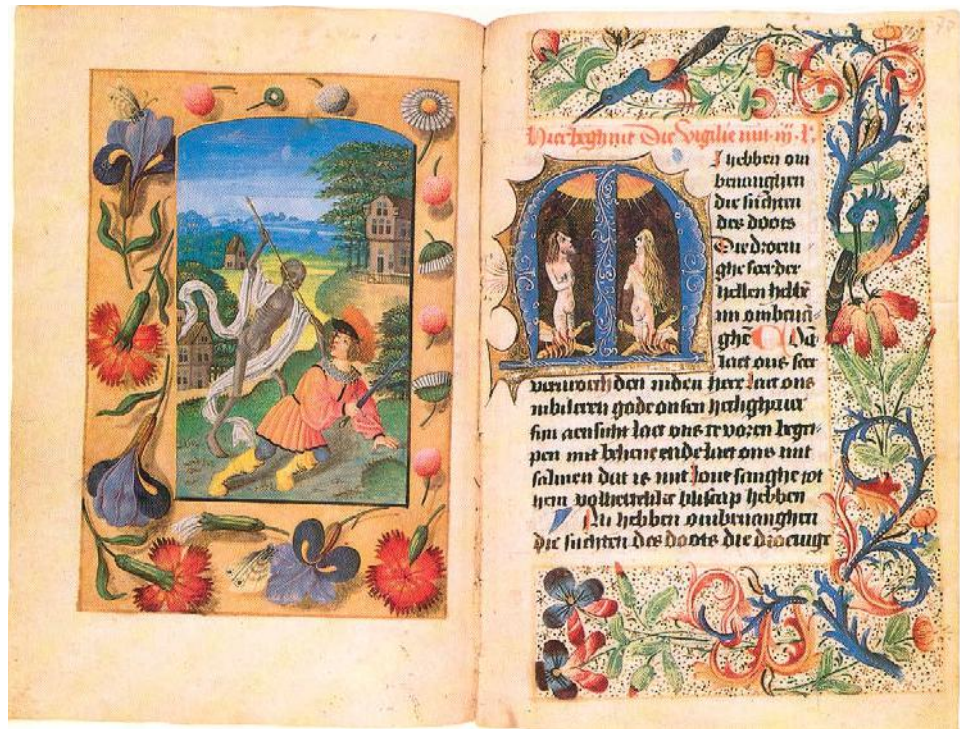 Hier beghint Die Vigilie mit .iij. l'.
MI hebben om
beuanghen
die suchten
des doots
Die droeui
ghe seer der
hellen hebbē
mi ombeuā
ghē
laet ons seer
den in den here laet ons
iubileren gode onsen
sijn aensicht laet ons te voren begri
pen mit belien ende laet ons mit
salmen dat is mit loue sanghe tot
hem bliscap hebben
Mi hebben ombeuanghen
die suchten des doots die droeuige